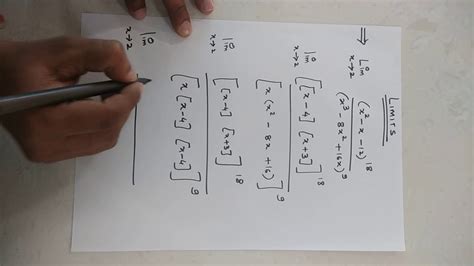 LIMITS
⇒ Lim x→2 (x² - x - 12)¹⁸ / (x³ - 8x² + 16x)⁹
lim x→2 [[x-4] [x+3]]¹⁸ / [x (x² - 8x + 16)]⁹
lim x→2 [[x-4] [x+3]]¹⁸ / [x [x-4] [x-4]]⁹
lim x→2